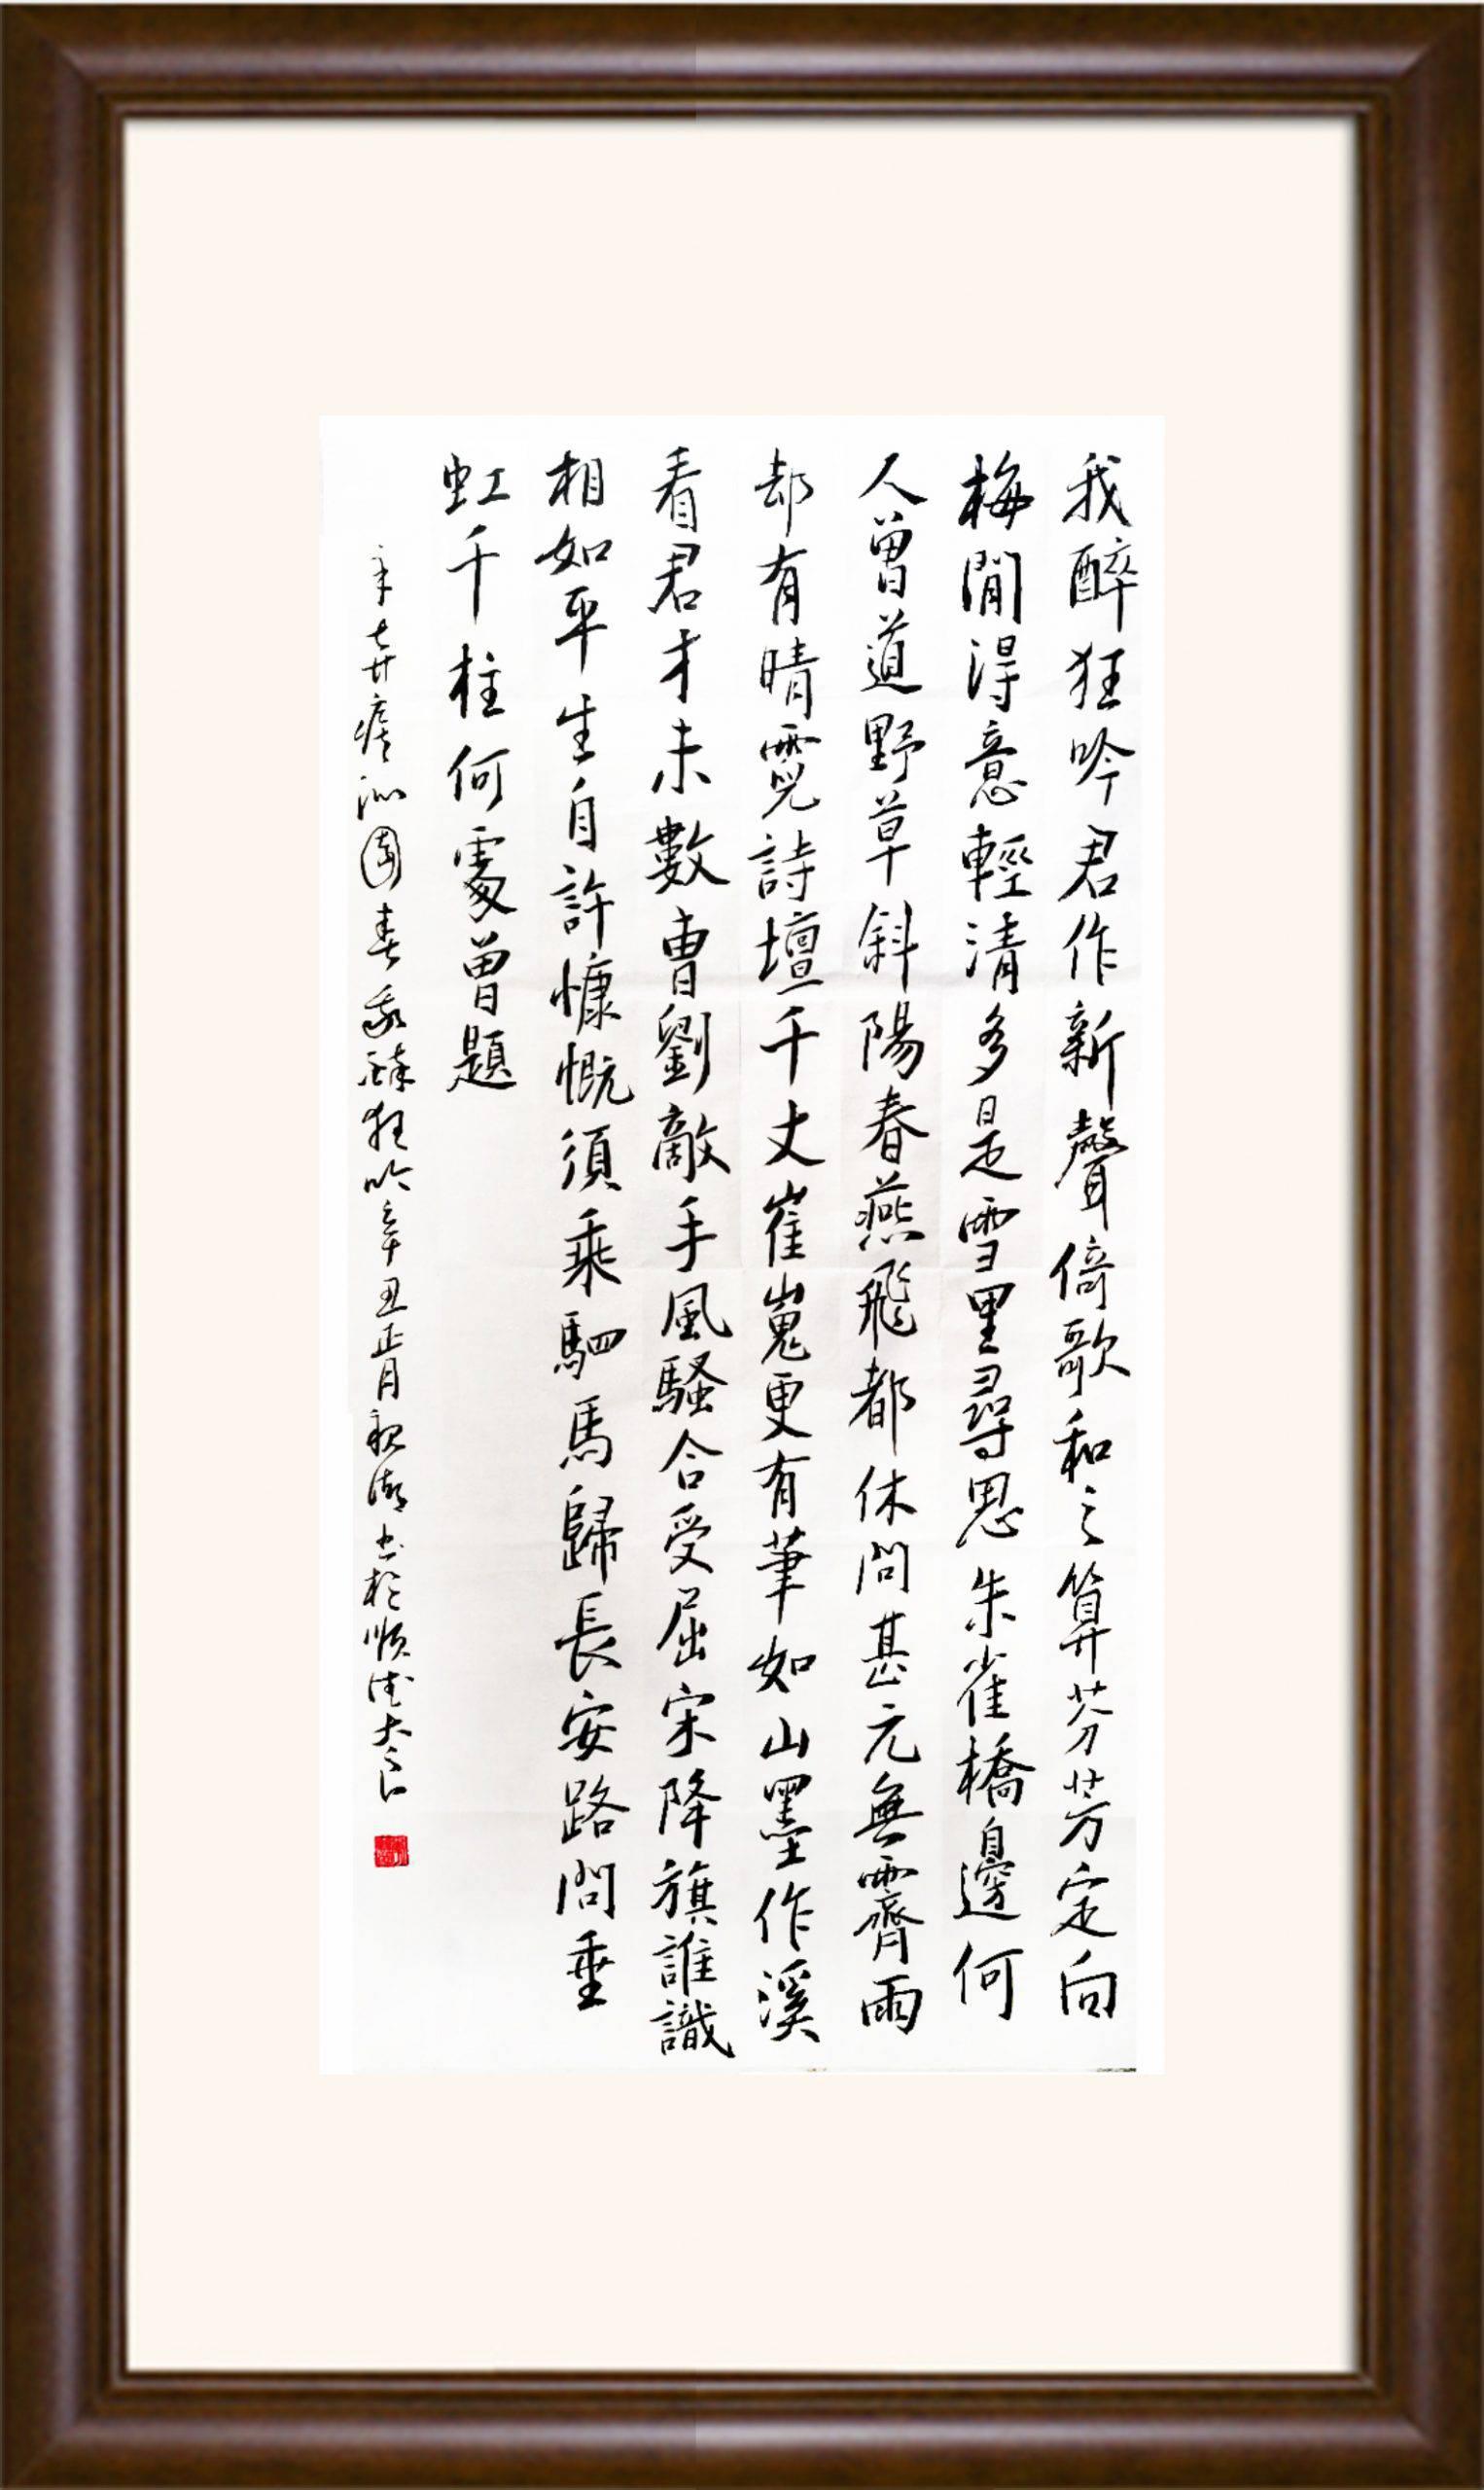 我醉狂吟君作新聲倚歌和之算芬芳定向
梅間得意輕清多是雪里尋思朱雀橋邊何
人曾道野草斜陽春燕飛都休問甚元無霽雨
却有晴霓詩壇千丈崔嵬更有筆如山墨作溪
看君才未數曹劉敵手風騷合受屈宋降旗誰識
相如平生自許慷慨須乘駟馬歸長安路問垂
虹千柱何處曾題
辛棄疾沁園春我醉狂吟辛丑正月 書於順德大良